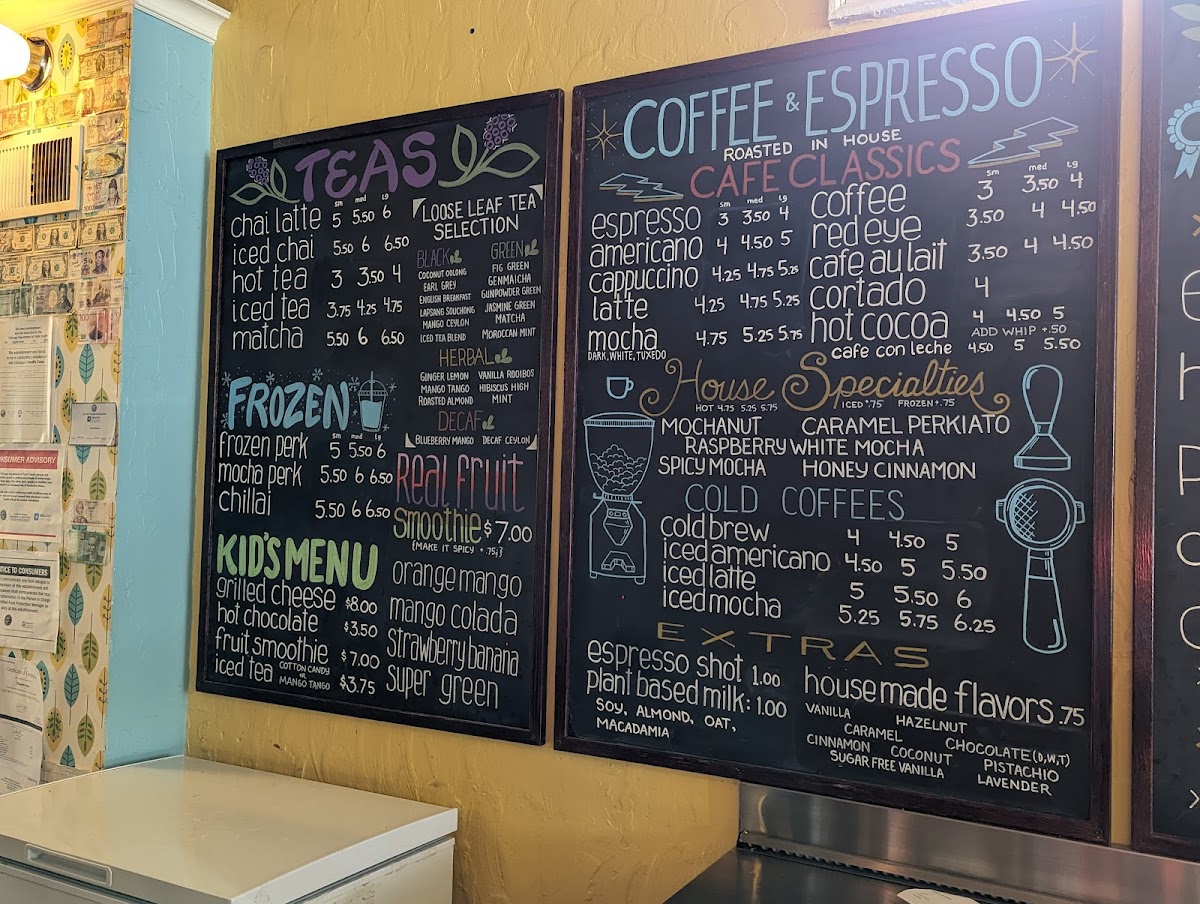 TEAS
sm med Lg
chai latte 5 5.50 6
iced chai 5.50 6 6.50
hot tea 3 3.50 4
iced tea 3.75 4.25 4.75
matcha 5.50 6 6.50
LOOSE LEAF TEA
SELECTION
BLACK
COCONUT OOLONG
EARL GREY
ENGLISH BREAKFAST
LAPSANG SOUCHING
MANGO CEYLON
ICED TEA BLEND
GREEN
FIG GREEN
GENMAICHA
GUNPOWDER GREEN
JASMINE GREEN
MATCHA
MOROCCAN MINT
HERBAL
GINGER LEMON VANILLA ROOIBOS
MANGO TANGO HIBISCUS HIGH
ROASTED ALMOND MINT
DECAF
BLUEBERRY MANGO DECAF CEYLON
FROZEN
sm med Lg
frozen perk 5 5.50 6
mocha perk 5.50 6 6.50
chillai 5.50 6 6.50
Real Fruit
Smoothie $7.00
{MAKE IT SPICY +.75¢}
orange mango
mango colada
Strawberry banana
Super green
KID'S MENU
grilled cheese $8.00
hot chocolate $3.50
fruit smoothie $7.00
iced tea COTTON CANDY OR MANGO TANGO $3.75
COFFEE & ESPRESSO
ROASTED IN HOUSE
CAFE CLASSICS
sm med Lg
espresso 3 3.50 4
americano 4 4.50 5
cappuccino 4.25 4.75 5.25
latte 4.25 4.75 5.25
mocha 4.75 5.25 5.75
DARK, WHITE, TUXEDO
sm med Lg
coffee 3 3.50 4
red eye 3.50 4 4.50
cafe au lait 3.50 4 4.50
cortado 4
hot cocoa 4 4.50 5
ADD WHIP +.50
cafe con leche 4.50 5 5.50
House Specialties
HOT 4.75 5.25 5.75 ICED +.75 FROZEN +.75
MOCHANUT CARAMEL PERKIATO
RASPBERRY WHITE MOCHA
SPICY MOCHA HONEY CINNAMON
COLD COFFEES
cold brew 4 4.50 5
iced americano 4.50 5 5.50
iced latte 5 5.50 6
iced mocha 5.25 5.75 6.25
EXTRAS
espresso shot 1.00
plant based milk: 1.00
SOY, ALMOND, OAT,
MACADAMIA
house made flavors .75
VANILLA HAZELNUT
CARAMEL CHOCOLATE (D,W,T)
CINNAMON COCONUT PISTACHIO
SUGAR FREE VANILLA LAVENDER